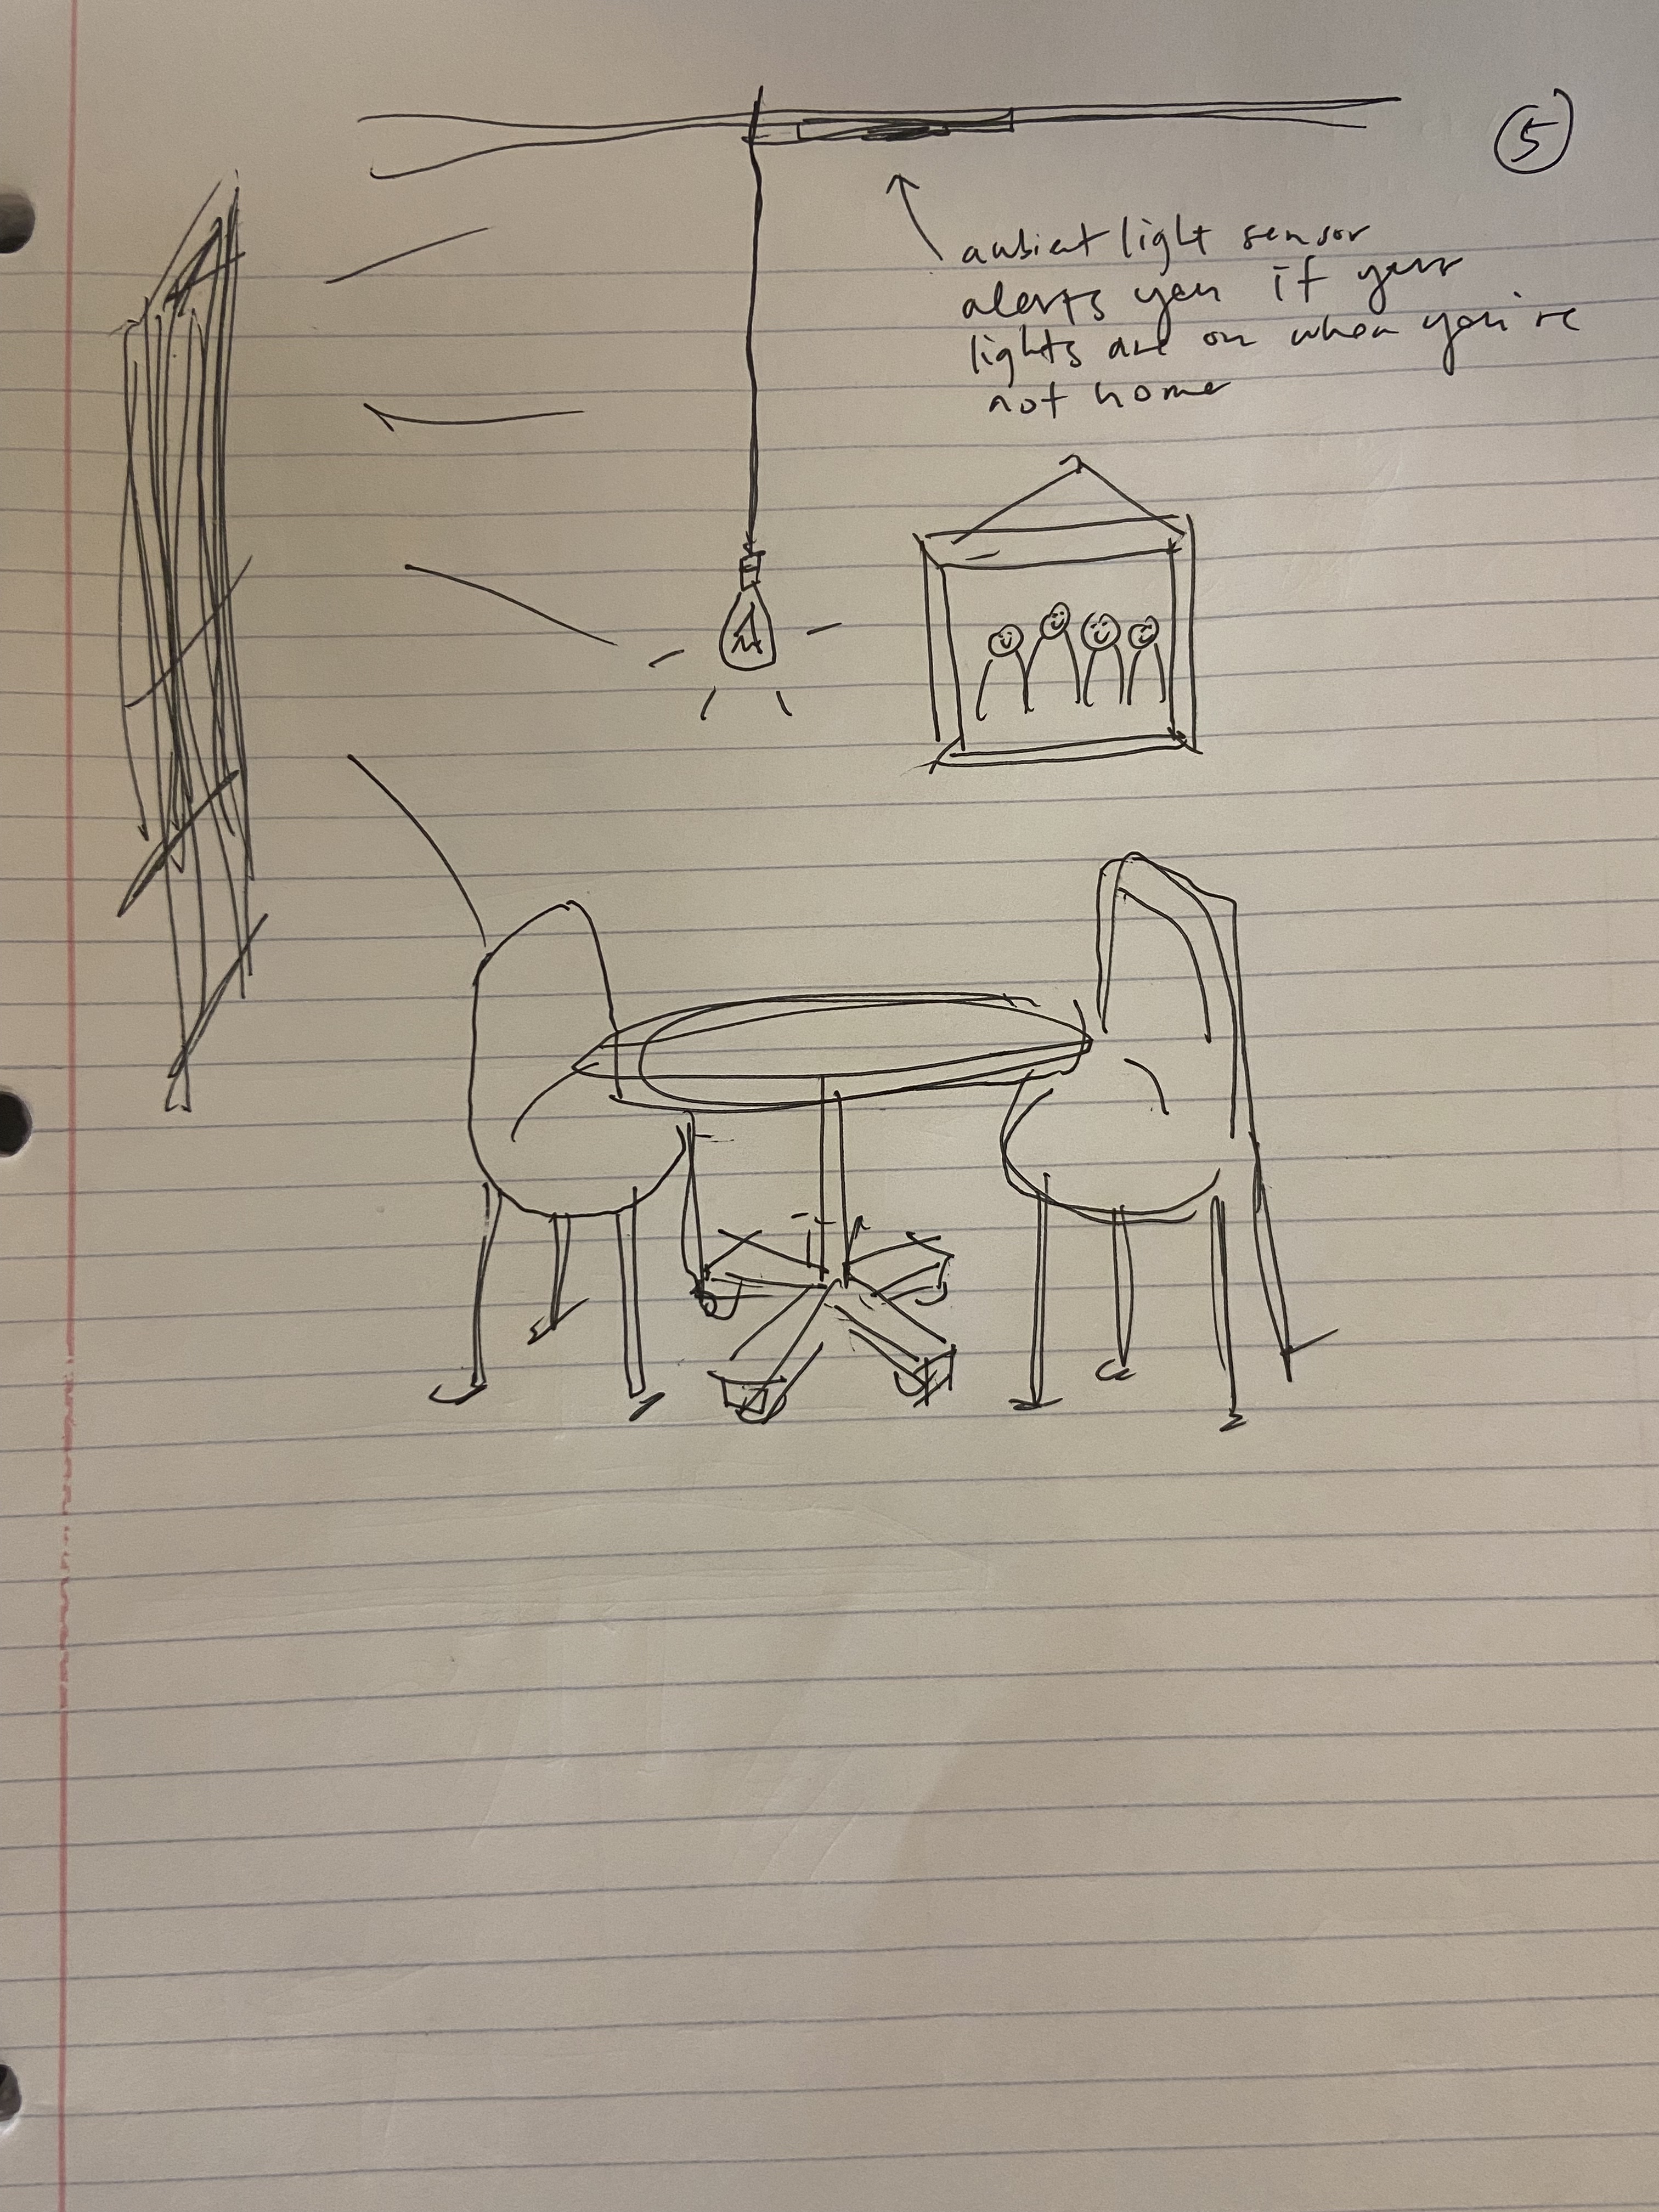 5
ambient light sensor
alerts you if your
lights are on when you're
not home